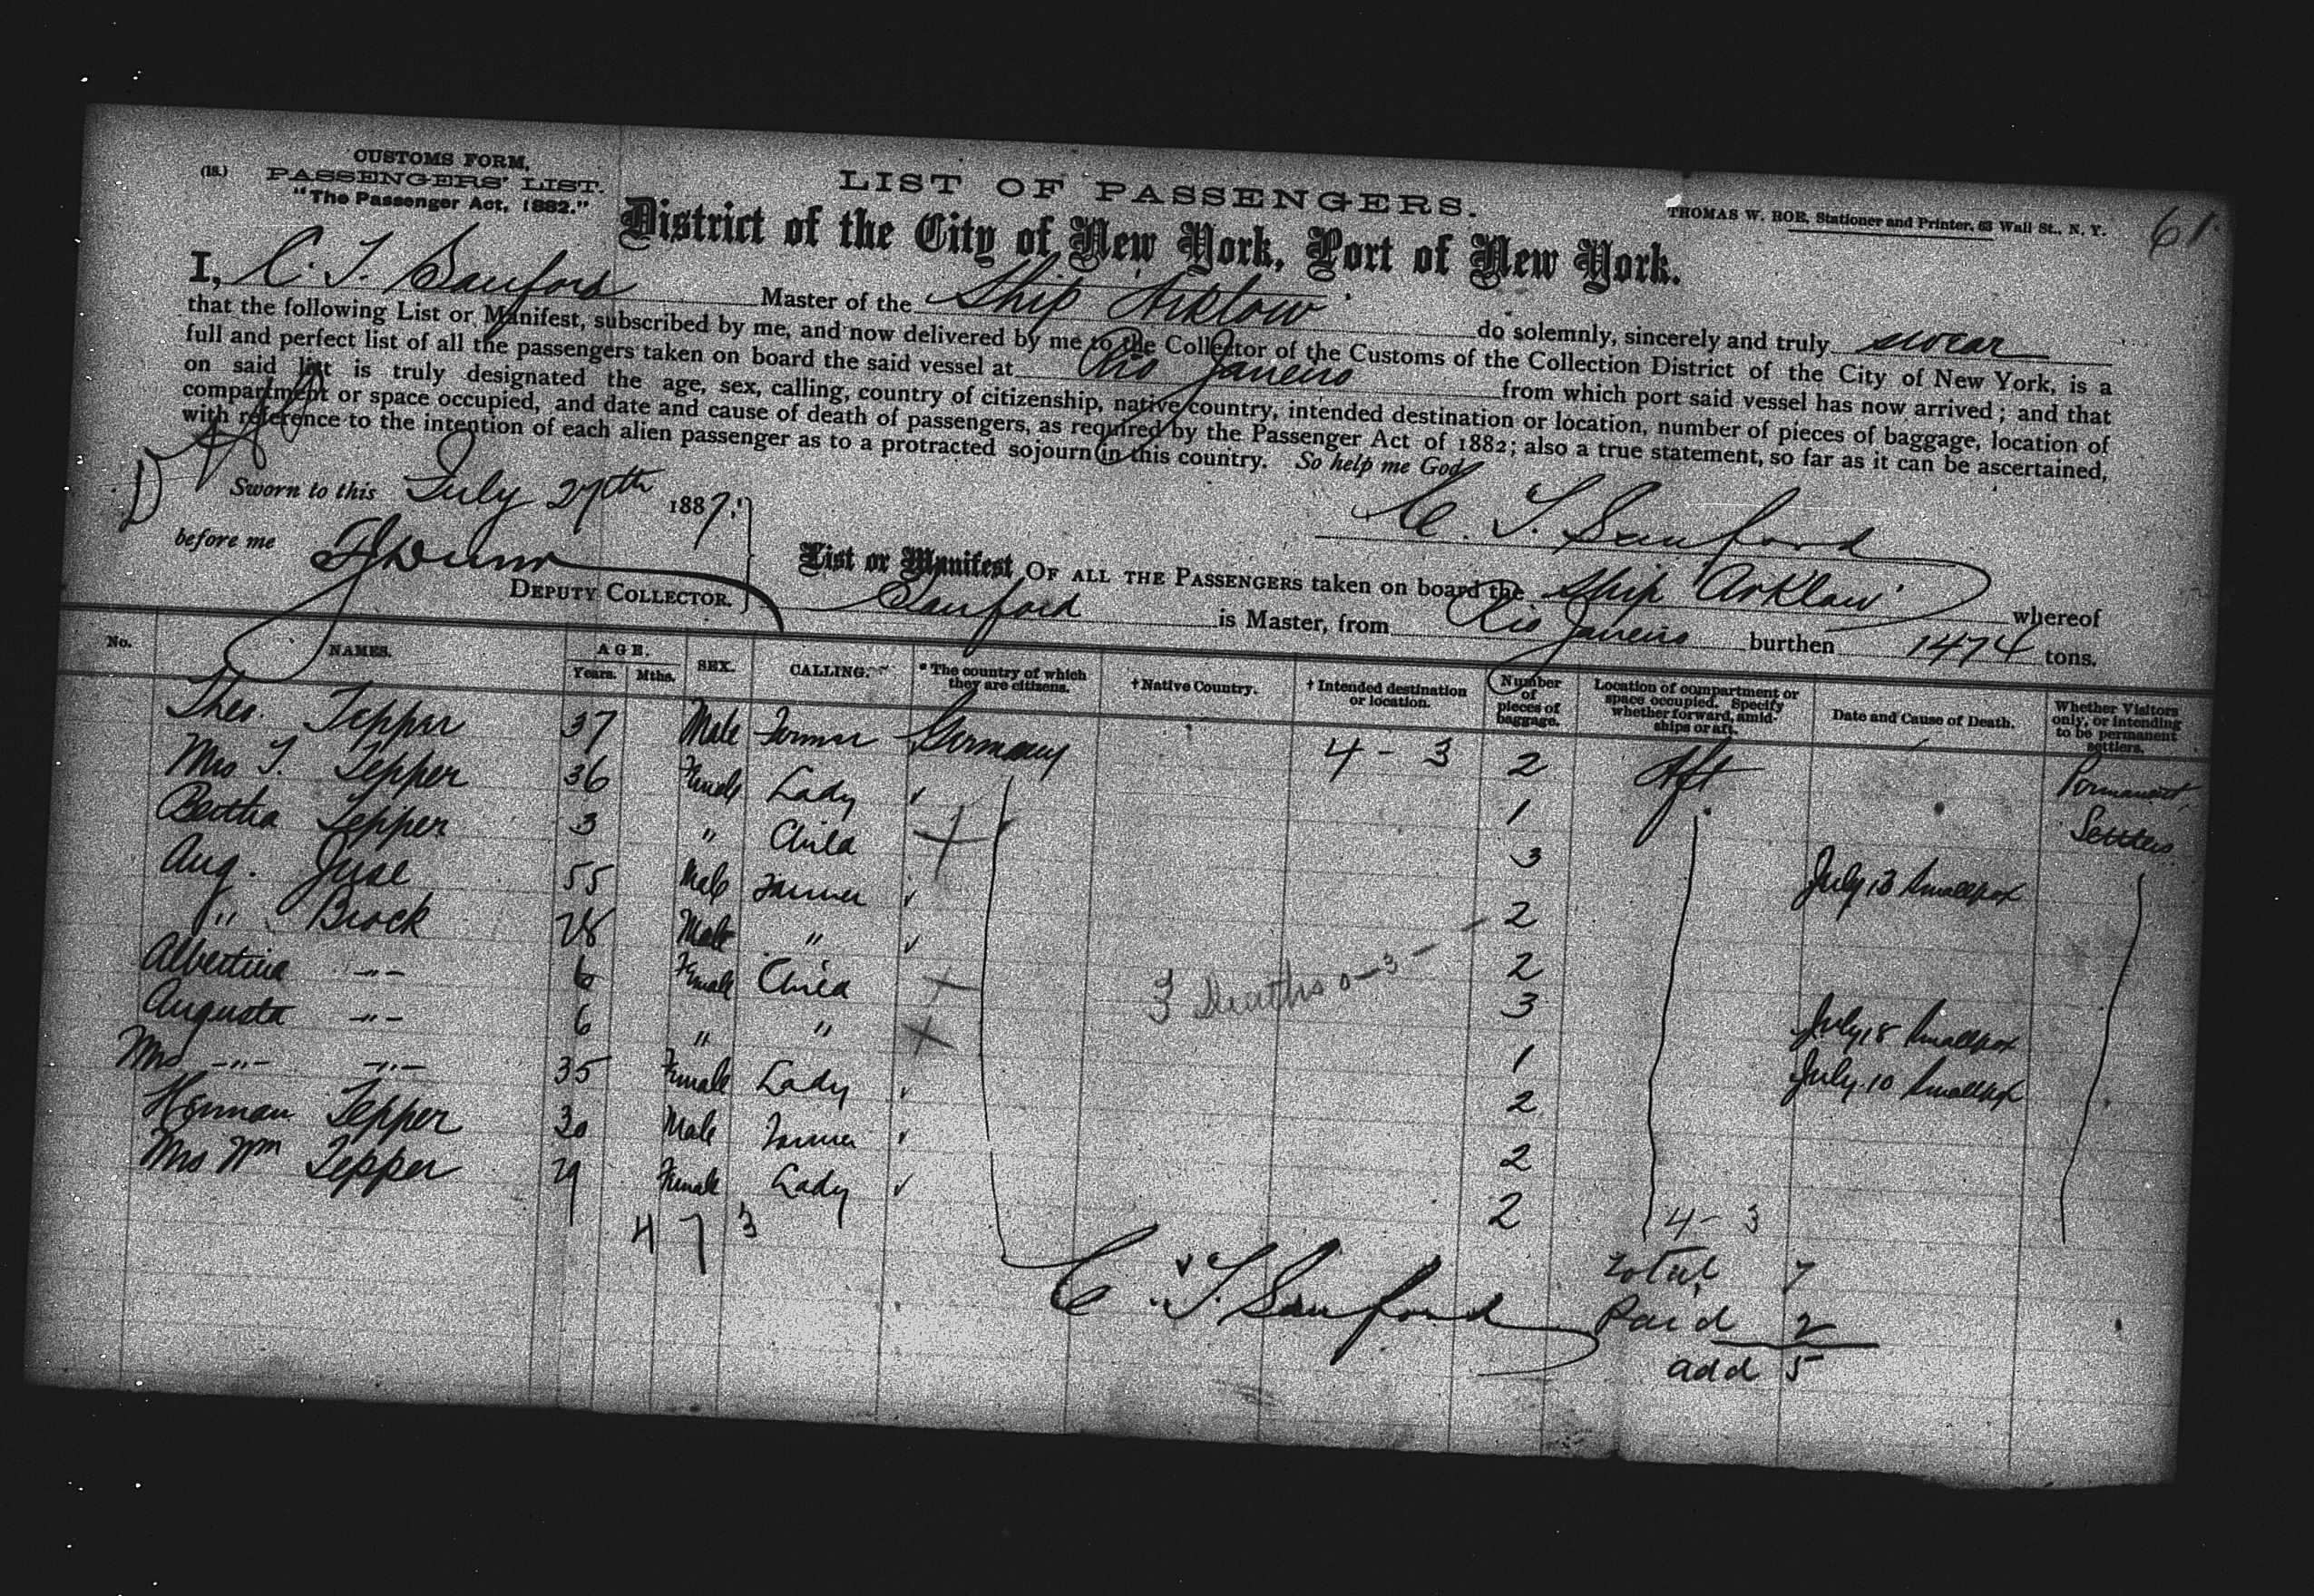 CUSTOMS FORM.
(18.) PASSENGERS' LIST.
"The Passenger Act, 1882."
LIST OF PASSENGERS.
THOMAS W. ROE, Stationer and Printer, 63 Wall St., N. Y.
61.
District of the City of New York, Port of New York.
I, C. T. Sanford Master of the Ship "Arklow" do solemnly, sincerely and truly swear
that the following List or Manifest, subscribed by me, and now delivered by me to the Collector of the Customs of the Collection District of the City of New York, is a
full and perfect list of all the passengers taken on board the said vessel at Rio Janeiro from which port said vessel has now arrived; and that
on said list is truly designated the age, sex, calling, country of citizenship, native country, intended destination or location, number of pieces of baggage, location of
compartment or space occupied, and date and cause of death of passengers, as required by the Passenger Act of 1882; also a true statement, so far as it can be ascertained,
with reference to the intention of each alien passenger as to a protracted sojourn in this country. So help me God
Sworn to this July 27th 1887.
C. T. Sanford
before me
DEPUTY COLLECTOR.
List or Manifest OF ALL THE PASSENGERS taken on board the Ship "Arklow" whereof
Sanford is Master, from Rio Janeiro burthen 1474 tons.
No. NAMES. AGE. Years. Mths. SEX. CALLING. * The country of which they are citizens. † Native Country. † Intended destination or location. Number of pieces of baggage. Location of compartment or space occupied. Specify whether forward, amidships or aft. Date and Cause of Death. Whether Visitors only, or intending to be permanent settlers.
Theo. Tepper 37 Male Farmer Germany 4 - 3 2 Aft Permanent
Mrs T. Tepper 36 Female Lady 1 Settlers
Bertha Tepper 3 " Child 3 July 13 Smallpox
Aug. 55 Male Farmer 2
" Brock 28 Male " 2
Albertina -"- 6 Female Child 3 July 18 Smallpox
3 Deaths 0-3-
Augusta -"- 6 " " 1 July 10 Smallpox
Mrs -"- -"- 35 Female Lady 2
Herman Tepper 30 Male Farmer 2
Mrs Wm Tepper 29 Female Lady 2
4 7 3
4 - 3
C. T. Sanford
Total 7
Paid 2
add 5